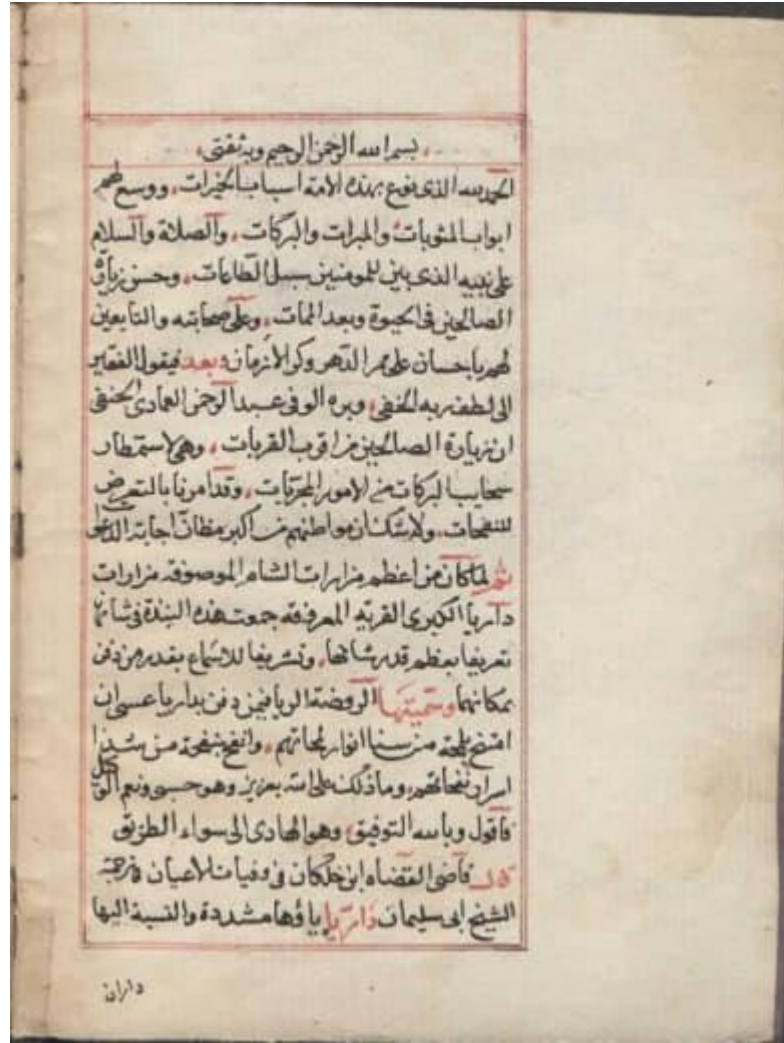 بسم الله الرحمن الرحيم وبه ثقتي
الحمد لله الذي نوع بهذه الامة اسباب الخيرات، ووسع لهم
ابواب المثوبات، والمبرات والبركات، والصلاة والسلام
على نبيه الذي بين للمومنين سبل الطاعات، وحسن زيارة
الصالحين في الحيوة وبعد الممات، وعلى صحابته والتابعين
لهم باحسان على ممر الدهر وكر الازمان وبعد فيقول الفقير
الى لطف ربه الخفي، وبره الوفي عبد الرحمن العمادي الحنفي
ان زيارة الصالحين من اقرب القربات، وهي لاستمطار
سحايب البركات من الامور المجربات، وقد امرنا بالتعرض
للنفحات، ولا شك ان مواطنهم من اكبر مظان اجابة الدعا
ثم لما كان من اعظم مزارات الشام الموصوفه مزارات
داريا الكبرى القرية المعرفه جمعت هذه النبذة في شانها
تعريفا بعظم قدر شانها، وتشريفا للاسماع بقدر من دفن
بمكانها وسميتها الروضة الريا فيمن دفن بداريا عسى ان
امنح بلمحة من سنا انوار لمحاتهم، وانفح بنفحة من شذا
اسرار نفحاتهم، وما ذلك على الله بعزيز وهو حسبي ونعم الوكيل
فاقول وبالله التوفيق، وهو الهادي الى سواء الطريق
قال قاضي القضاه ابن خلكان في وفيات الاعيان في ترجمة
الشيخ ابي سليمان داريا ياؤها مشددة والنسبة اليها
داران